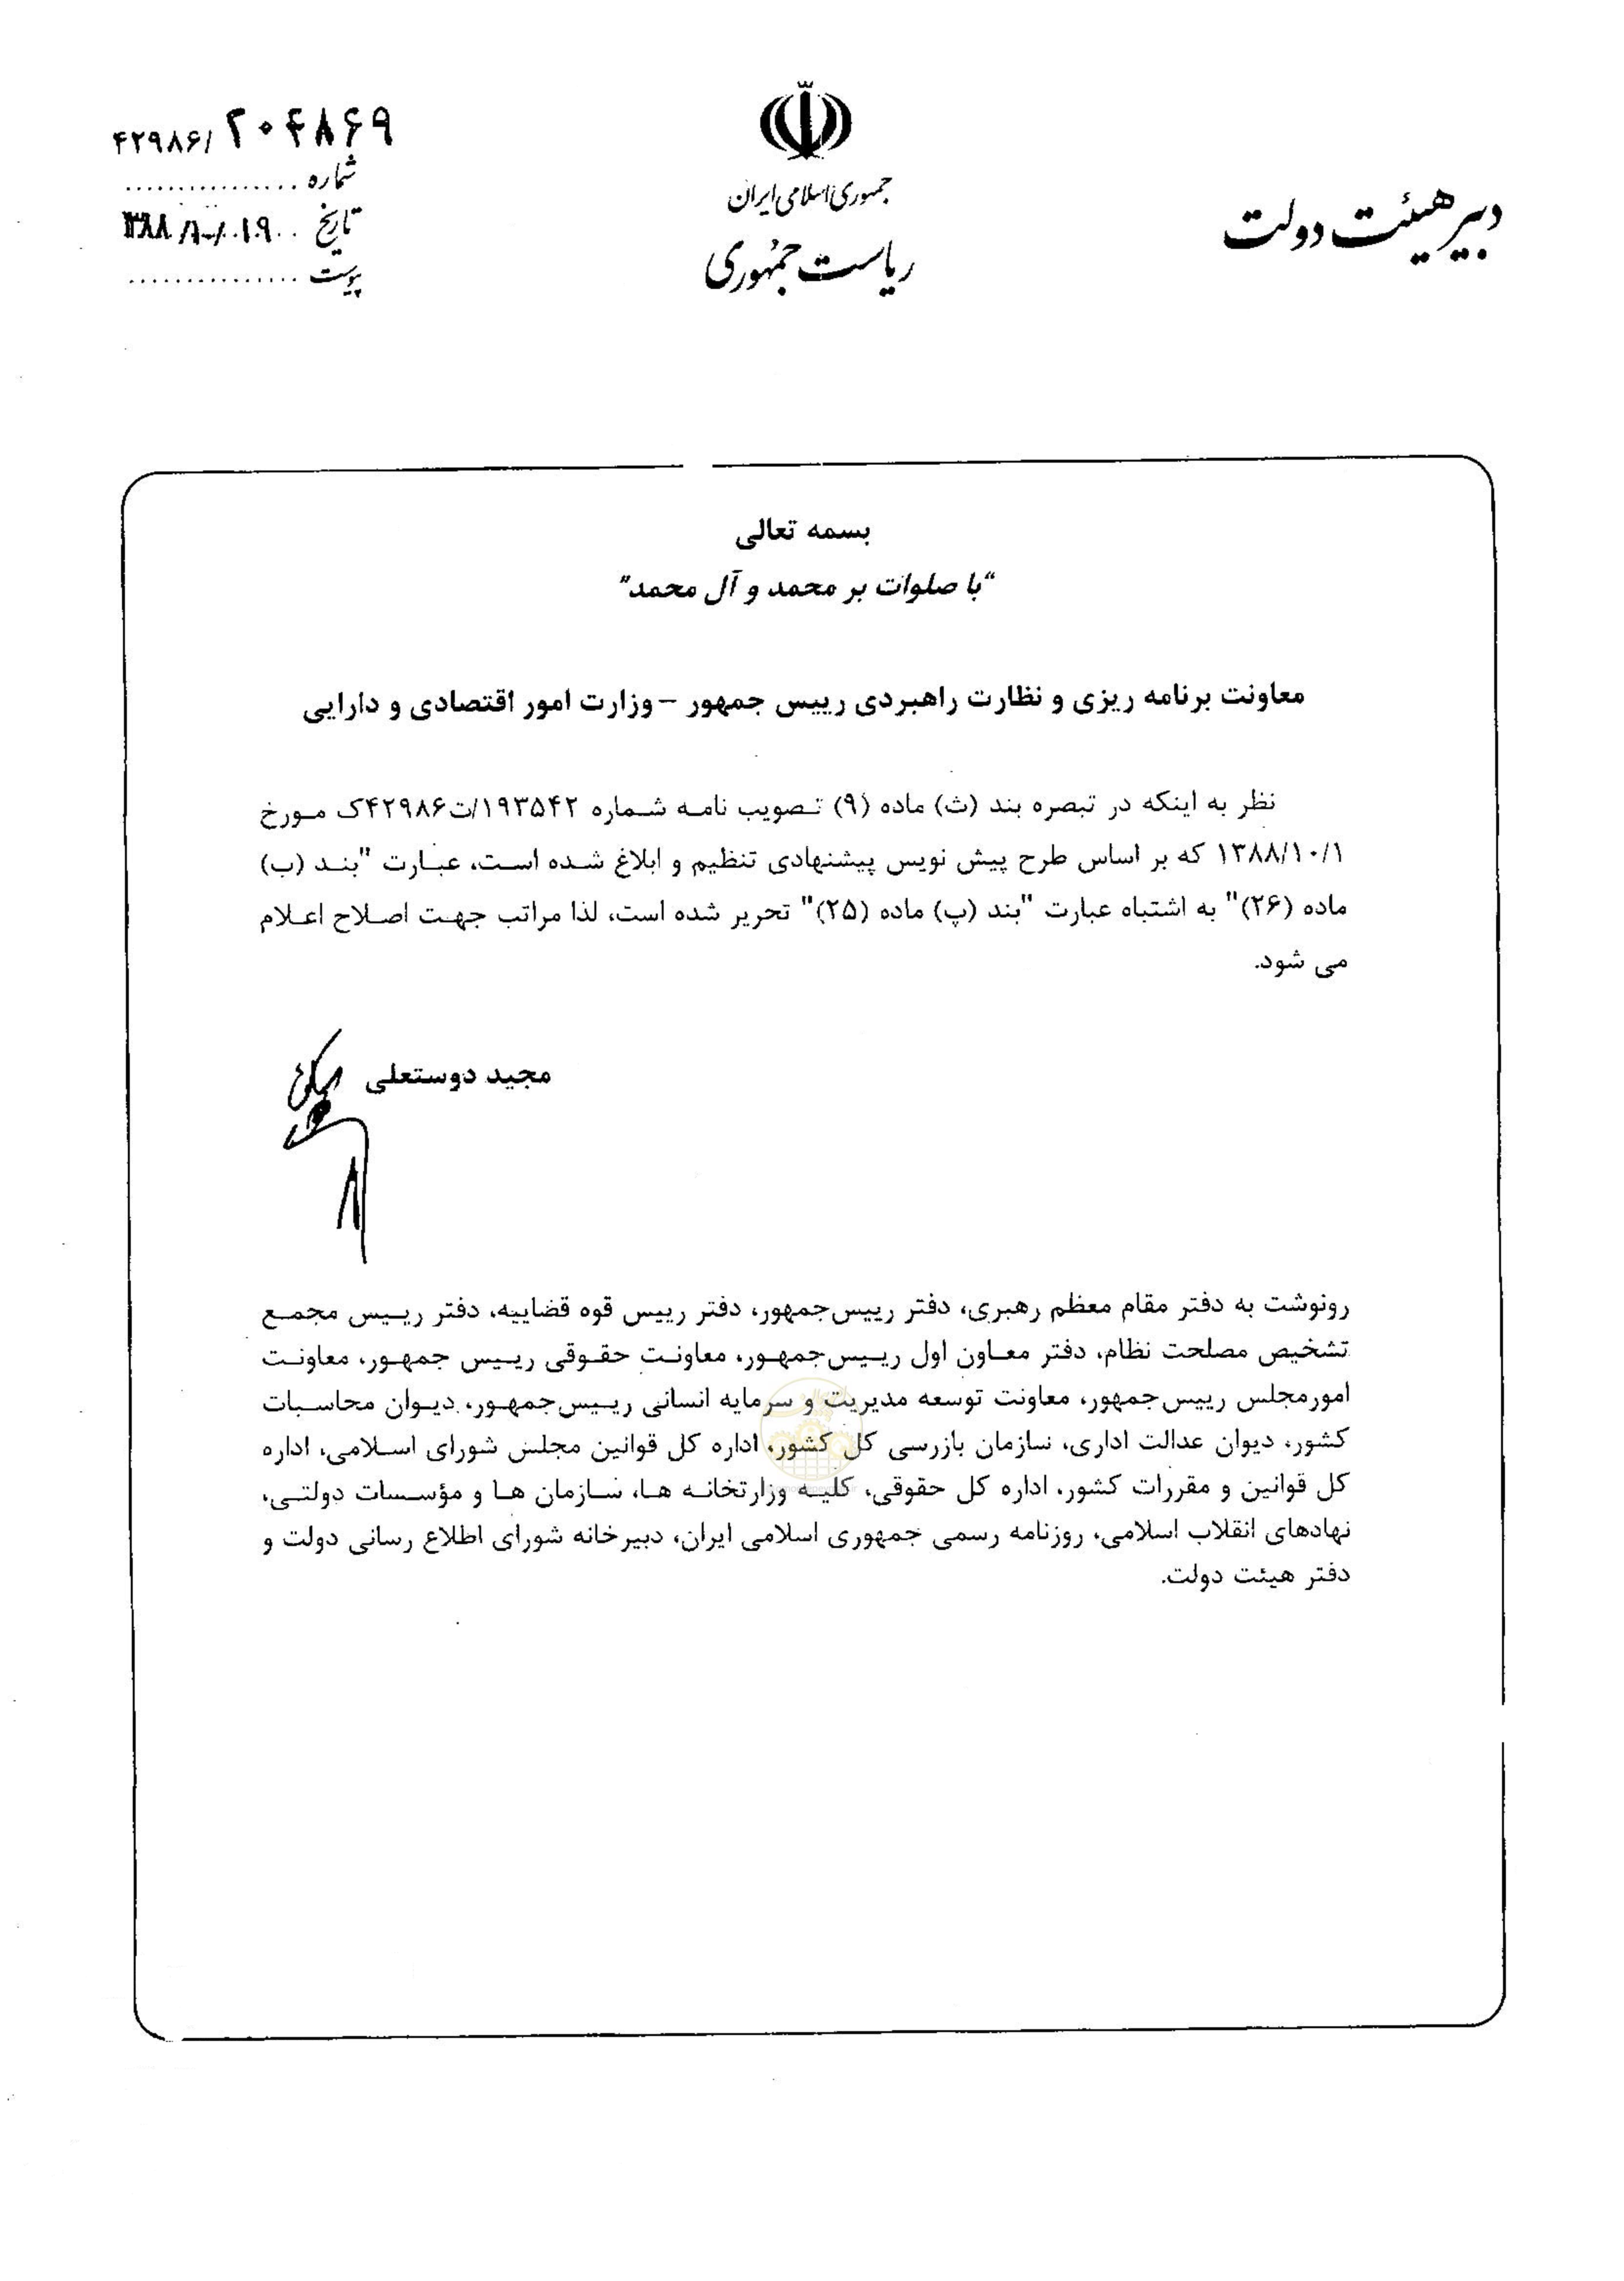 جمهوری اسلامی ایران
ریاست جمهوری
دبیر هیئت دولت
۴۲۹۸۶/ ۲۰۴۸۶۹
شماره ................
تاریخ
پیوست ................
بسمه تعالی
"با صلوات بر محمد و آل محمد"
معاونت برنامه ریزی و نظارت راهبردی رییس جمهور – وزارت امور اقتصادی و دارایی
نظر به اینکه در تبصره بند (ث) ماده (۹) تصویب نامه شماره ۱۹۳۵۴۲/ت۴۲۹۸۶ک مورخ
۱۳۸۸/۱۰/۱ که بر اساس طرح پیش نویس پیشنهادی تنظیم و ابلاغ شده است، عبارت "بند (ب)
ماده (۲۶)" به اشتباه عبارت "بند (پ) ماده (۲۵)" تحریر شده است، لذا مراتب جهت اصلاح اعلام
می شود.
مجید دوستعلی
رونوشت به دفتر مقام معظم رهبری، دفتر رییس‌جمهور، دفتر رییس قوه قضاییه، دفتر رییس مجمع
تشخیص مصلحت نظام، دفتر معاون اول رییس‌جمهور، معاونت حقوقی رییس جمهور، معاونت
امورمجلس رییس‌جمهور، معاونت توسعه مدیریت و سرمایه انسانی رییس‌جمهور، دیوان محاسبات
کشور، دیوان عدالت اداری، سازمان بازرسی کل کشور، اداره کل قوانین مجلس شورای اسلامی، اداره
کل قوانین و مقررات کشور، اداره کل حقوقی، کلیه وزارتخانه ها، سازمان ها و مؤسسات دولتی،
نهادهای انقلاب اسلامی، روزنامه رسمی جمهوری اسلامی ایران، دبیرخانه شورای اطلاع رسانی دولت و
دفتر هیئت دولت.